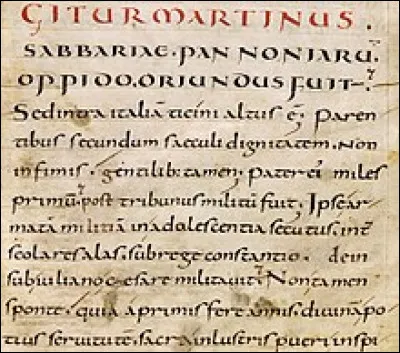 GITUR MARTINUS.
SABBARIAE. PANNONIARU.
OPPIDO. ORIUNDUS FUIT.
Sedintra italiā ticini altus ē. Paren
tibus secundum saeculi dignitatem. Non
infimis. gentilib; tamen. Pater ei miles
primū. post tribunus militū fuit. Ipse ar
matā militiā in adolescentia secutus. int
scolares alas. sub rege constantio. dein
sub iuliano cesare militavit. Non tamen
sponte. quia a primis fere annis. divinā po
tius servitutē. sacra inlustris pueri inspi